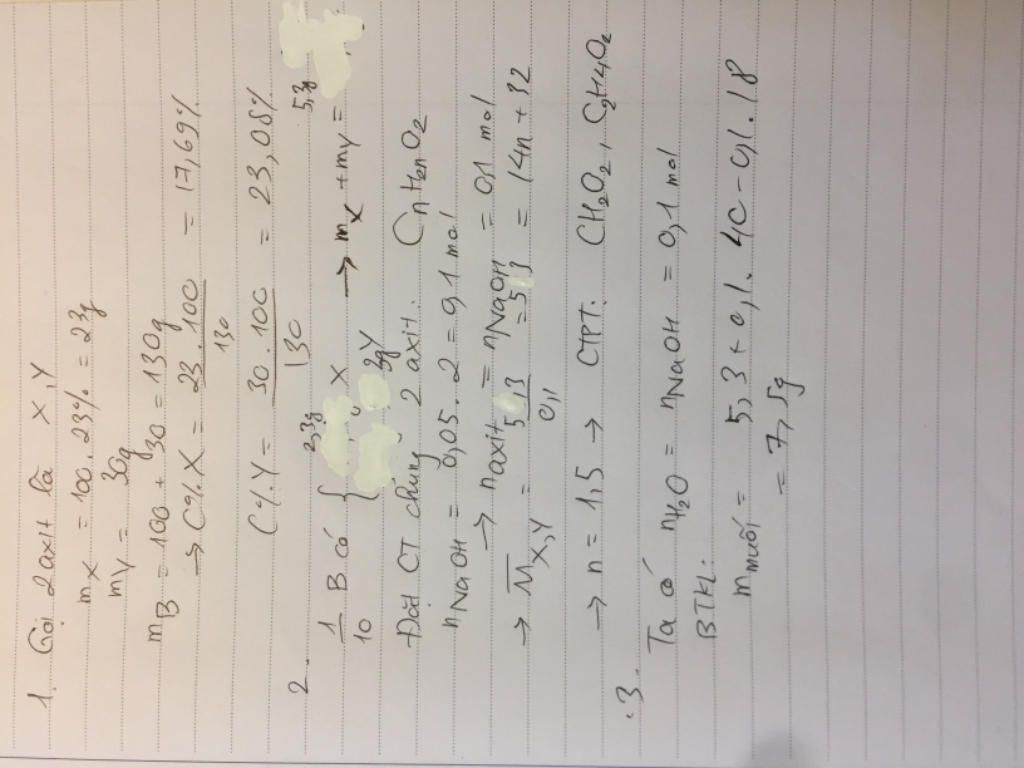 1. Gọi 2 axit là X, Y
mX = 100.23% = 23g
mY = 30g
mB = 100 + 30 = 130g
→ C%X = 23.100 / 130 = 17,69%
C%Y = 30.100 / 130 = 23,08%
2.
1/10 B có { 2,3g X 3g Y → mX + mY = 5,3g
Đặt CT chung 2 axit. CnH2nO2
nNaOH = 0,05.2 = 0,1 mol
→ naxit = nNaOH = 0,1 mol
→ M̅X,Y = 5,3 / 0,1 = 53 = 14n + 32
→ n = 1,5 → CTPT: CH2O2, C2H4O2
3.
Ta có nH2O = nNaOH = 0,1 mol
BTKL:
mmuối = 5,3 + 0,1.40 - 0,1.18
= 7,5g